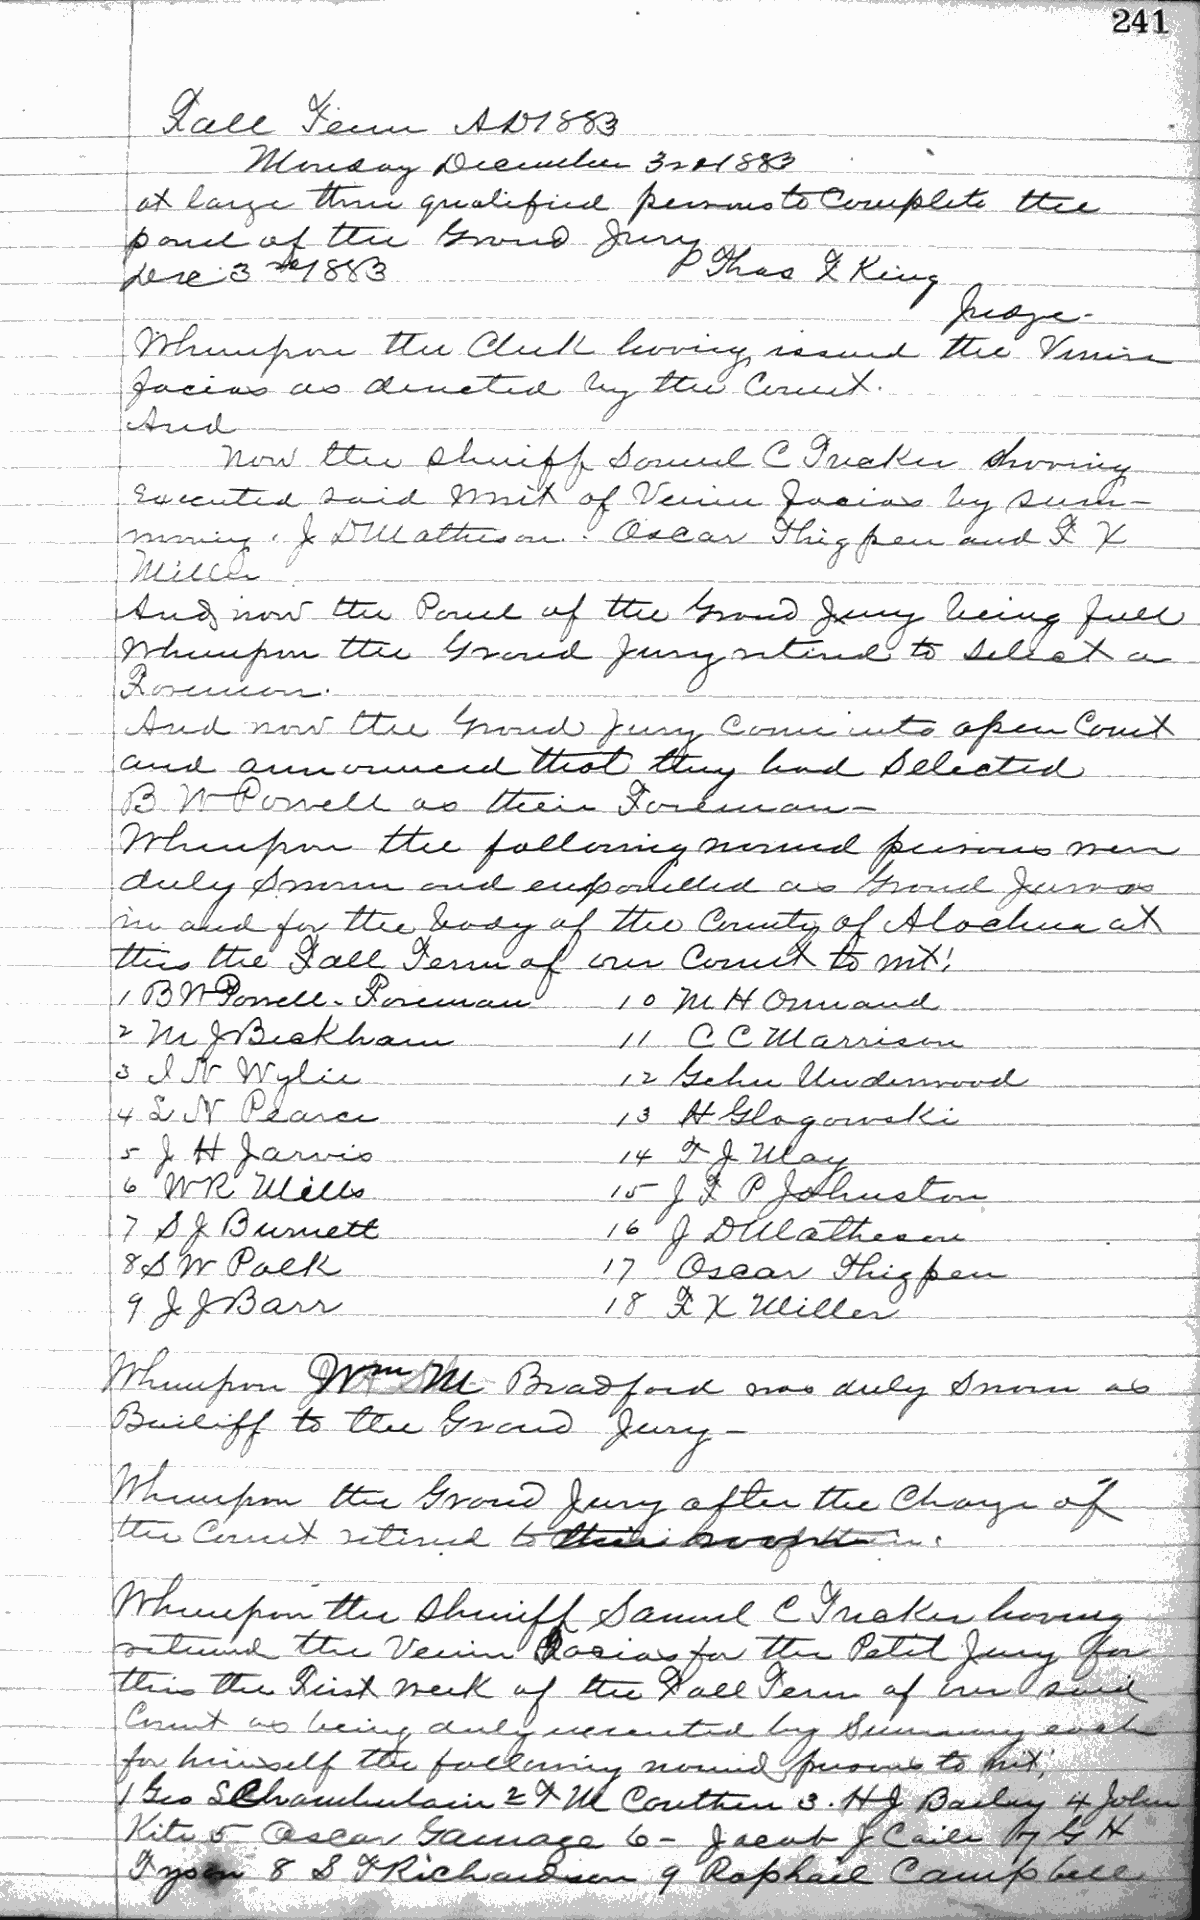 241
Fall Term AD 1883
Monday December 3rd 1883
at large three qualified persons to Complete the
panel of the Grand Jury
Dec 3rd 1883 Thos F King
Judge-
Whereupon the Clerk having issued the Venire
facias as directed by the Court.
And
Now the Sheriff Samuel C Tucker having
Executed said Writ of Venire facias by Sum-
moning. J D Matheson. Oscar Thigpen and F X
Miller
And now the Panel of the Grand Jury being full
Whereupon the Grand Jury retired to Select a
Foreman.
And now the Grand Jury Came into open Court
and announced that they had Selected
B W Powell as their Foreman-
Whereupon the following named persons were
duly Sworn and empanelled as Grand Jurors
in and for the body of the County of Alachua at
this the Fall Term of our Court to wit;
1 B W Powell. Foreman 10 M H Ormand
2 M J Beckham 11 C C Marrison
3 I N Wylie 12 Gehu Underwood
4 L N Pearce 13 H Glogowski
5 J H Jarvis 14 F J May
6 W R Mills 15 J F P Johnston
7 S J Burnett 16 J D Matheson
8 S W Polk 17 Oscar Thigpen
9 J J Barr 18 F X Miller
Whereupon Wm M Bradford was duly Sworn as
Bailiff to the Grand Jury-
Whereupon the Grand Jury after the Charge of
the Court retired to their
Whereupon the Sheriff Samuel C Tucker having
returned the Venire Facias for the Petit Jury for
this the First week of the Fall Term of our said
Court as being duly executed by Summing each
for himself the following named persons to wit;
1 Geo S Chamberlain 2 F M Cauthen 3. H J Bailey 4 John
Kite 5 Oscar Gamage 6- Jacob J Caile 7 G H
Tyson 8 S F Richardson 9 Raphail Campbell